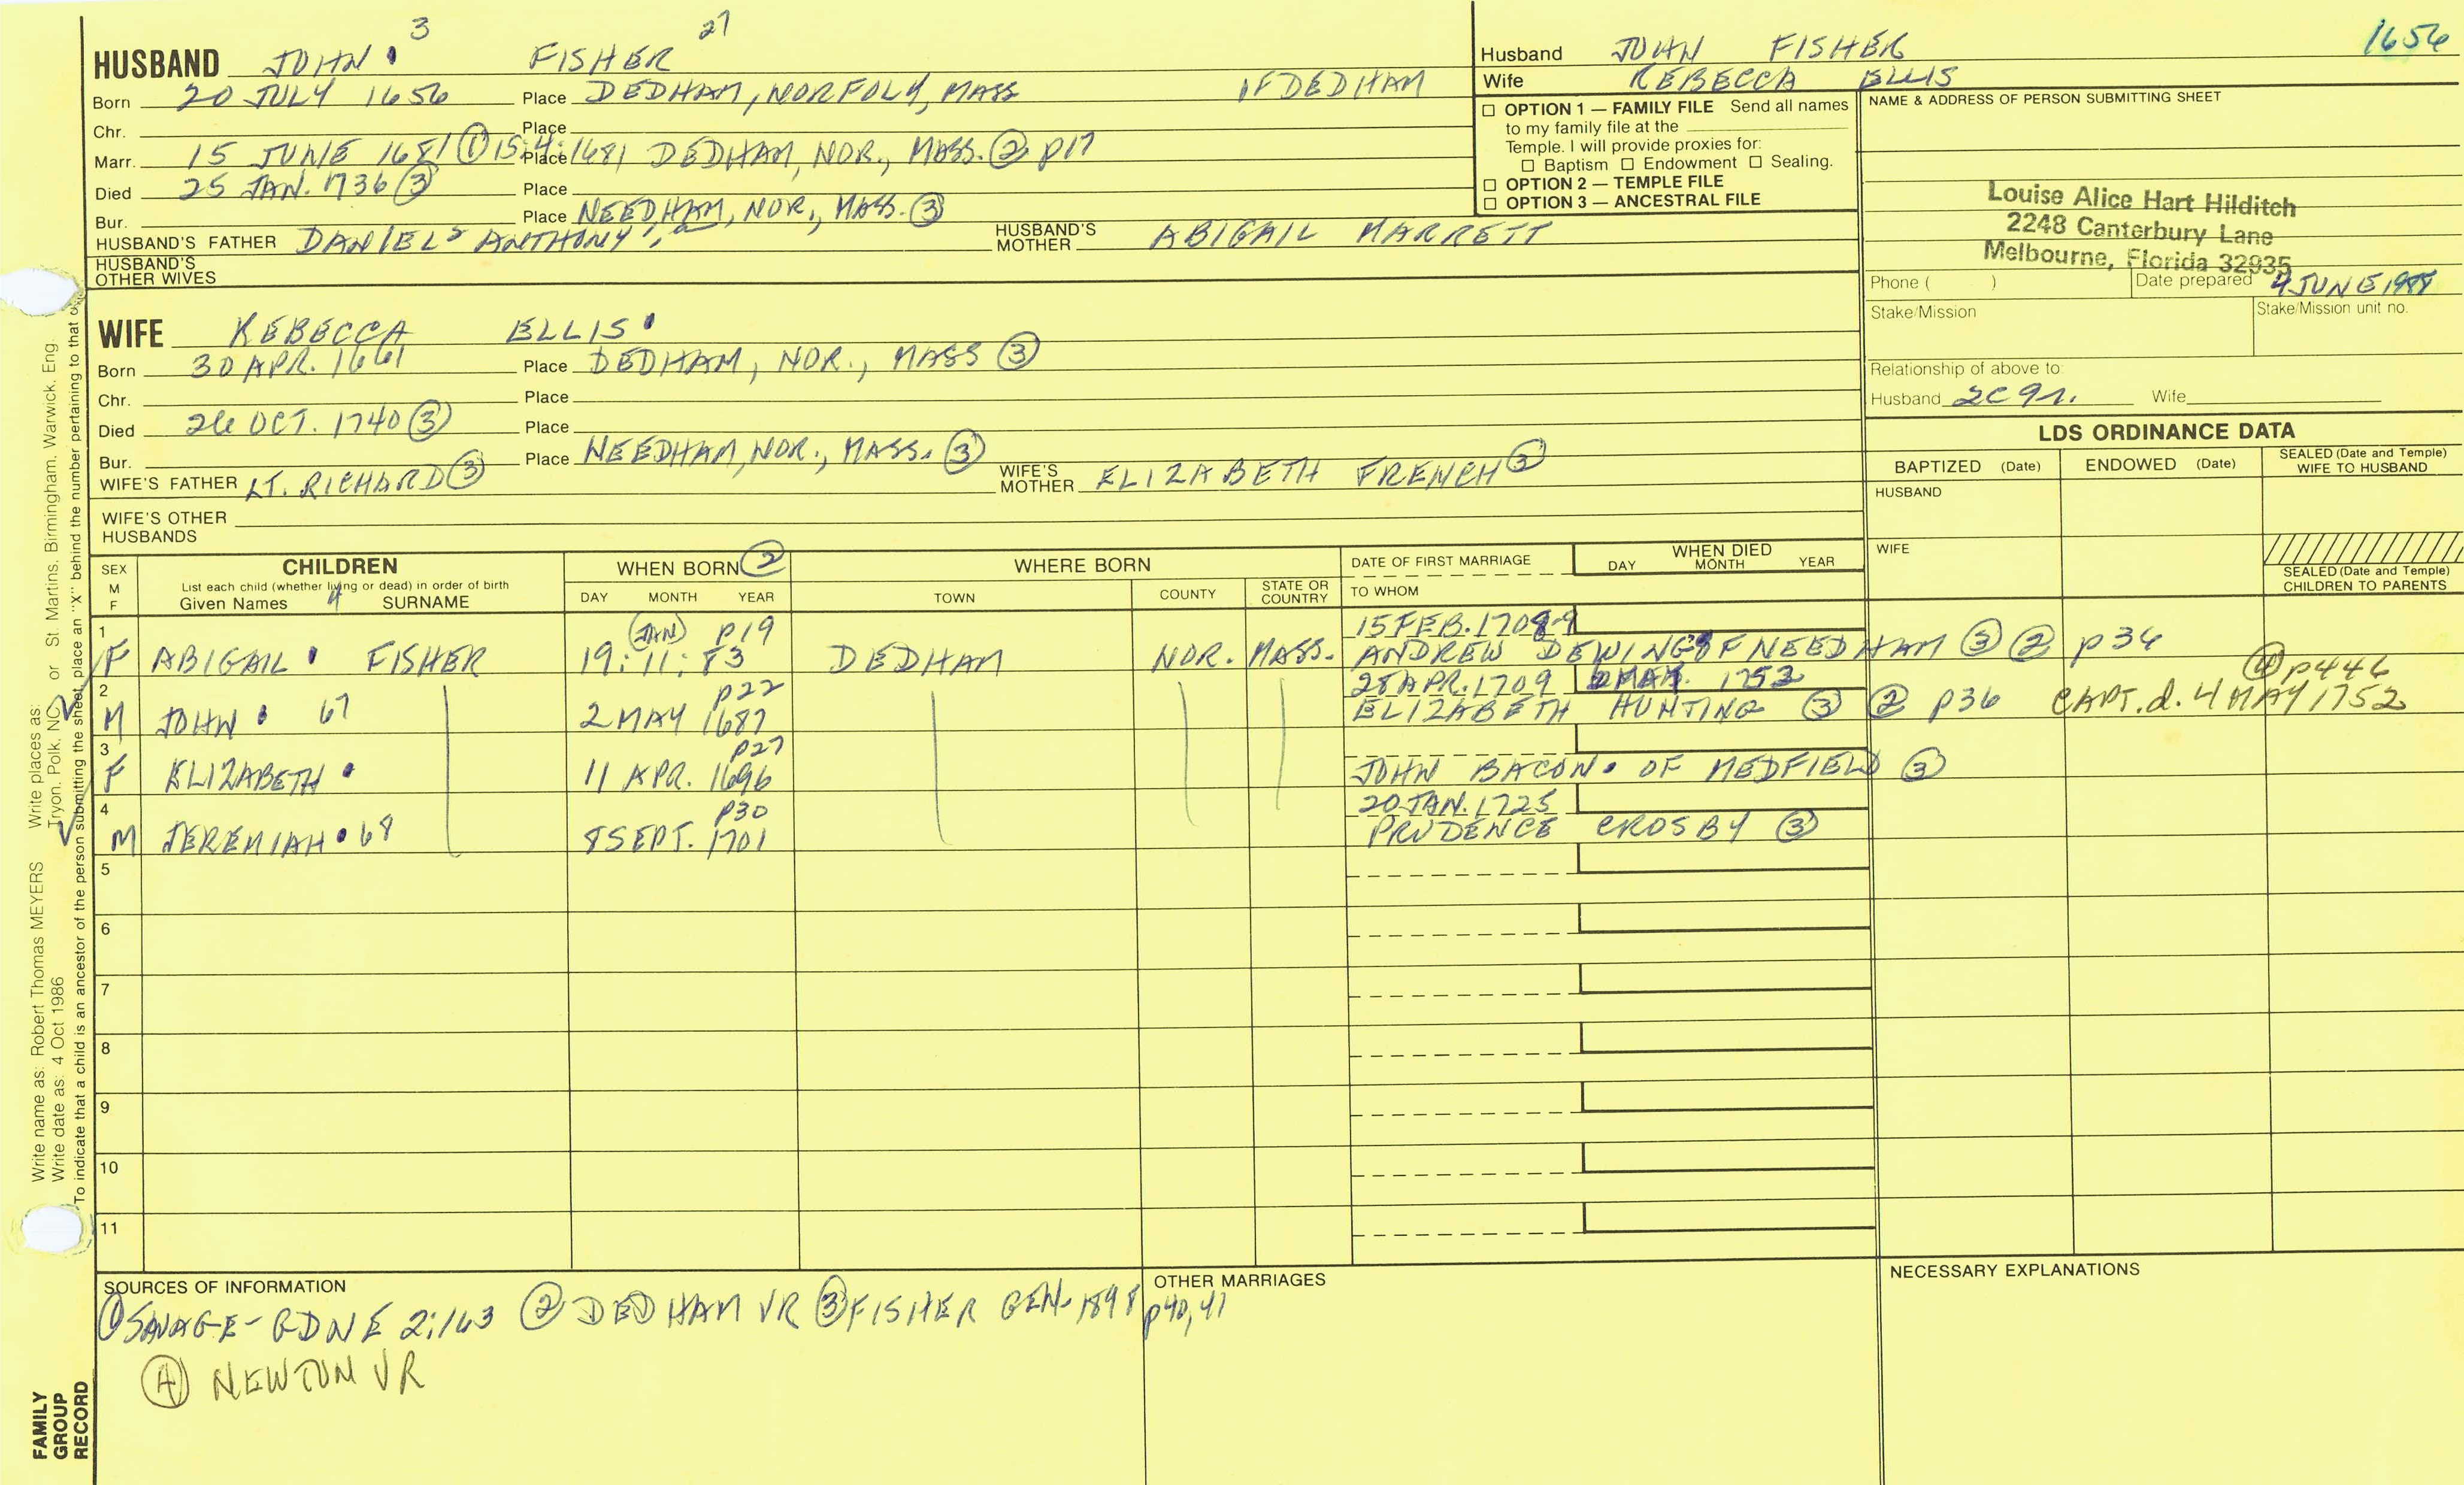 3 27
HUSBAND JOHN FISHER
Born 20 JULY 1656 Place DEDHAM, NORFOLK, MASS 1F DEDHAM
Chr. Place
Marr. 15 JUNE 1681 ① 15:4:1681 Place DEDHAM, NOR., MASS. ② p17
Died 25 JAN. 1736 ③ Place
Bur. Place NEEDHAM, NOR., MASS. ③
HUSBAND'S FATHER DANIEL2 ANTHONY HUSBAND'S MOTHER ABIGAIL MARRETT
HUSBAND'S OTHER WIVES
WIFE REBECCA ELLIS
Born 30 APR. 1661 Place DEDHAM, NOR., MASS ③
Chr. Place
Died 26 OCT. 1740 ③ Place
Bur. Place NEEDHAM, NOR., MASS. ③
WIFE'S FATHER LT. RICHARD ③ WIFE'S MOTHER ELIZABETH FRENCH ③
WIFE'S OTHER HUSBANDS
Husband JOHN FISHER 1656
Wife REBECCA ELLIS
☐ OPTION 1 — FAMILY FILE Send all names
to my family file at the
Temple. I will provide proxies for:
☐ Baptism ☐ Endowment ☐ Sealing.
☐ OPTION 2 — TEMPLE FILE
☐ OPTION 3 — ANCESTRAL FILE
NAME & ADDRESS OF PERSON SUBMITTING SHEET
Louise Alice Hart Hilditch
2248 Canterbury Lane
Melbourne, Florida 32935
Phone ( ) Date prepared 4 JUNE 1988
Stake/Mission Stake/Mission unit no.
Relationship of above to:
Husband 2C 9r. Wife
LDS ORDINANCE DATA
BAPTIZED (Date) ENDOWED (Date) SEALED (Date and Temple) WIFE TO HUSBAND
HUSBAND
WIFE
SEALED (Date and Temple)
CHILDREN TO PARENTS
SEX M F
CHILDREN
List each child (whether living or dead) in order of birth
Given Names 4 SURNAME
WHEN BORN ②
DAY MONTH YEAR
WHERE BORN
TOWN COUNTY STATE OR COUNTRY
DATE OF FIRST MARRIAGE
TO WHOM
WHEN DIED
DAY MONTH YEAR
1 (JAN) p19 15 FEB. 1708-9
F ABIGAIL FISHER 19:11:83 DEDHAM NOR. MASS. ANDREW DEWING OF NEEDHAM ③ ② p36
2 p22 28 APR. 1709 MAR. 1753 ④ p446
M JOHN 67 2 MAY 1687 ELIZABETH HUNTING ③ ② p36 CAPT. d. 4 MAY 1752
3 p27
F ELIZABETH 11 APR. 1696 JOHN BACON OF MEDFIELD ③
4 p30 20 JAN. 1725
M JEREMIAH 68 8 SEPT. 1701 PRUDENCE CROSBY ③
5
6
7
8
9
10
11
SOURCES OF INFORMATION
① SAVAGE-GDNE 2:163 ② DEDHAM VR ③ FISHER GEN. 1898 p40,41
④ NEWTON VR
OTHER MARRIAGES
NECESSARY EXPLANATIONS
Write name as: Robert Thomas MEYERS Write places as: Tryon, Polk, NC or St. Martins, Birmingham, Warwick, Eng.
Write date as: 4 Oct 1986
To indicate that a child is an ancestor of the person submitting the sheet, place an "X" behind the number pertaining to that
FAMILY
GROUP
RECORD